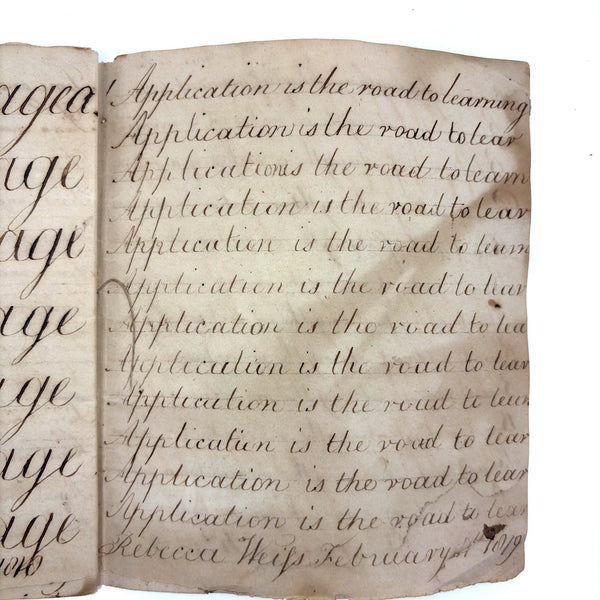 agea
age
age
age
age
age
age
Application is the road to learning
Application is the road to lear
Application is the road to learn
Application is the road to lear
Application is the road to learn
Application is the road to lear
Application is the road to lea
Application is the road to lear
Application is the road to lear
Application is the road to lear
Application is the road to lear
Application is the road to lear
Rebecca Weiſs February 1819